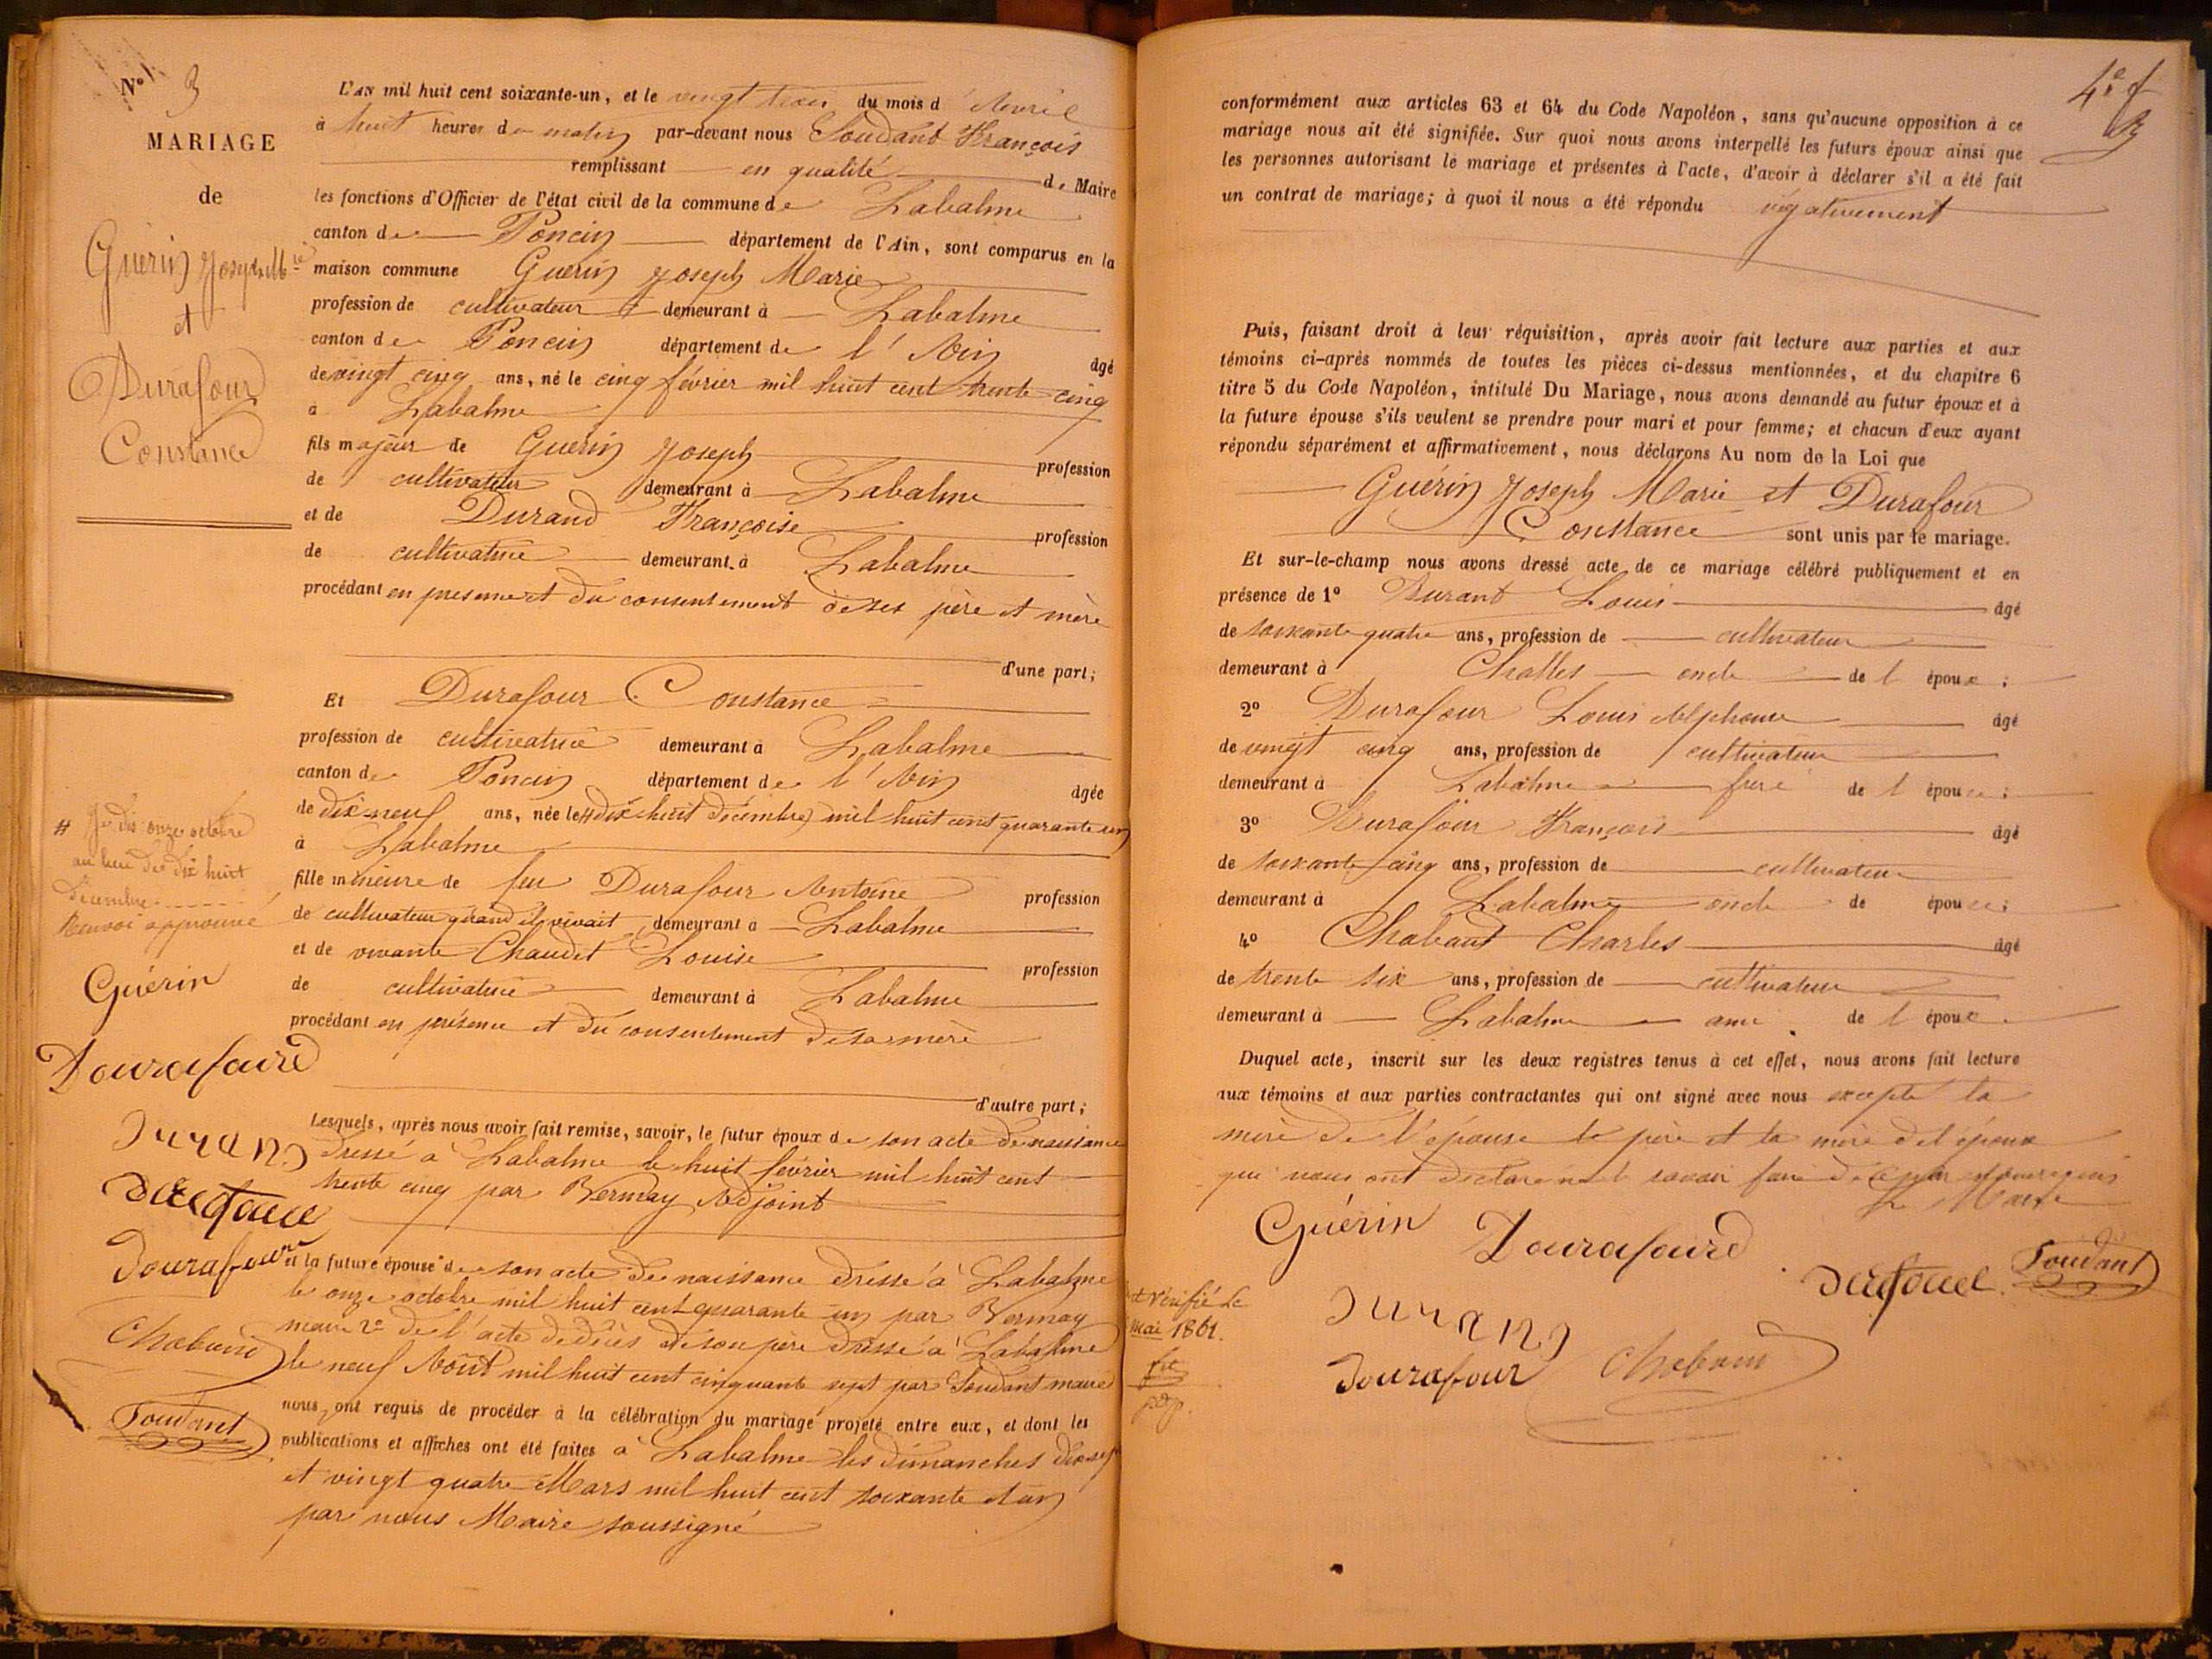 N° 3
MARIAGE
de
Guérin Joseph Mie
et
Durafour
Constance
L'AN mil huit cent soixante-un, et le vingt trois du mois d'Avril
à huit heures du matin par-devant nous Soudant François
remplissant en qualité de Maire
les fonctions d'Officier de l'état civil de la commune de Labalme
canton de Poncin département de l'Ain, sont comparus en la
maison commune Guérin Joseph Marie
profession de cultivateur demeurant à Labalme
canton de Poncin département de l'Ain âgé
de vingt cinq ans, né le cinq février mil huit cent trente cinq
à Labalme
fils majeur de Guérin Joseph profession
de cultivateur demeurant à Labalme
et de Durand Françoise profession
de cultivatrice demeurant à Labalme
procédant en presence et du consentement de ses père et mère
d'une part;
Et Durafour Constance
profession de cultivatrice demeurant à Labalme
canton de Poncin département de l'Ain âgée
de dix-neuf ans, née le # dix huit décembre mil huit cent quarante un
à Labalme
fille mineure de feu Durafour Antoine profession
de cultivateur quand il vivait demeurant à Labalme
et de vivante Chaudet Louise profession
de cultivatrice demeurant à Labalme
procédant en présence et du consentement de sa mère
d'autre part;
Lesquels, après nous avoir fait remise, savoir, le futur époux de son acte de naissance
dressé à Labalme le huit février mil huit cent
trente cinq par Bermay Adjoint
et la future épouse de son acte de naissance dressé à Labalme
le onze octobre mil huit cent quarante un par Bermay
maire 2° de l'acte de décès de son père dressé à Labalme
le neuf Août mil huit cent cinquante sept par Soudant maire
nous ont requis de procéder à la célébration du mariage projeté entre eux, et dont les
publications et affiches ont été faites à Labalme les dimanches dix sept
et vingt quatre Mars mil huit cent soixante et un
par nous Maire soussigné
# Je dis onze octobre
au lieu de dix huit
décembre
Renvoi approuvé
Guérin
Dourafourd
Durand
Dourafour
Chabaud
Soudant
conformément aux articles 63 et 64 du Code Napoléon, sans qu'aucune opposition à ce
mariage nous ait été signifiée. Sur quoi nous avons interpellé les futurs époux ainsi que
les personnes autorisant le mariage et présentes à l'acte, d'avoir à déclarer s'il a été fait
un contrat de mariage; à quoi il nous a été répondu négativement
Puis, faisant droit à leur réquisition, après avoir fait lecture aux parties et aux
témoins ci-après nommés de toutes les pièces ci-dessus mentionnées, et du chapitre 6
titre 5 du Code Napoléon, intitulé Du Mariage, nous avons demandé au futur époux et à
la future épouse s'ils veulent se prendre pour mari et pour femme; et chacun d'eux ayant
répondu séparément et affirmativement, nous déclarons Au nom de la Loi que
Guérin Joseph Marie et Durafour
Constance sont unis par le mariage.
Et sur-le-champ nous avons dressé acte de ce mariage célébré publiquement et en
présence de 1° Durant Louis âgé
de soixante quatre ans, profession de cultivateur
demeurant à Challes oncle de l'époux;
2° Durafour Louis Alphonse âgé
de vingt cinq ans, profession de cultivateur
demeurant à Labalme frère de l'épouse;
3° Durafour François âgé
de soixante cinq ans, profession de cultivateur
demeurant à Labalme oncle de épouse;
4° Chabaud Charles âgé
de trente six ans, profession de cultivateur
demeurant à Labalme ami de l'époux.
Duquel acte, inscrit sur les deux registres tenus à cet effet, nous avons fait lecture
aux témoins et aux parties contractantes qui ont signé avec nous excepté la
mère de l'épouse le père et la mère de l'époux
qui nous ont déclaré ne le savoir faire de ce par nous requis
Le Maire
Guérin
Dourafourd
Soudant
Durand
Dourafour
Chabaud
vérifié le
mai 1861.